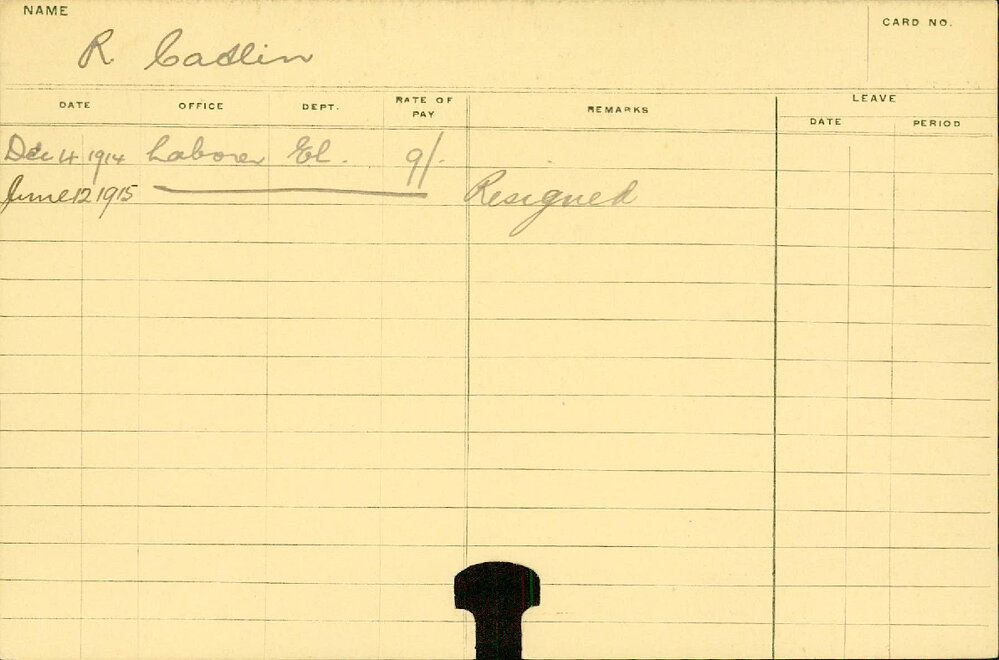 NAME
CARD NO.
R Cadlin
DATE OFFICE DEPT. RATE OF PAY REMARKS LEAVE
DATE PERIOD
Dec 4 1914 Laborer El. 9/-
June 12 1915 Resigned